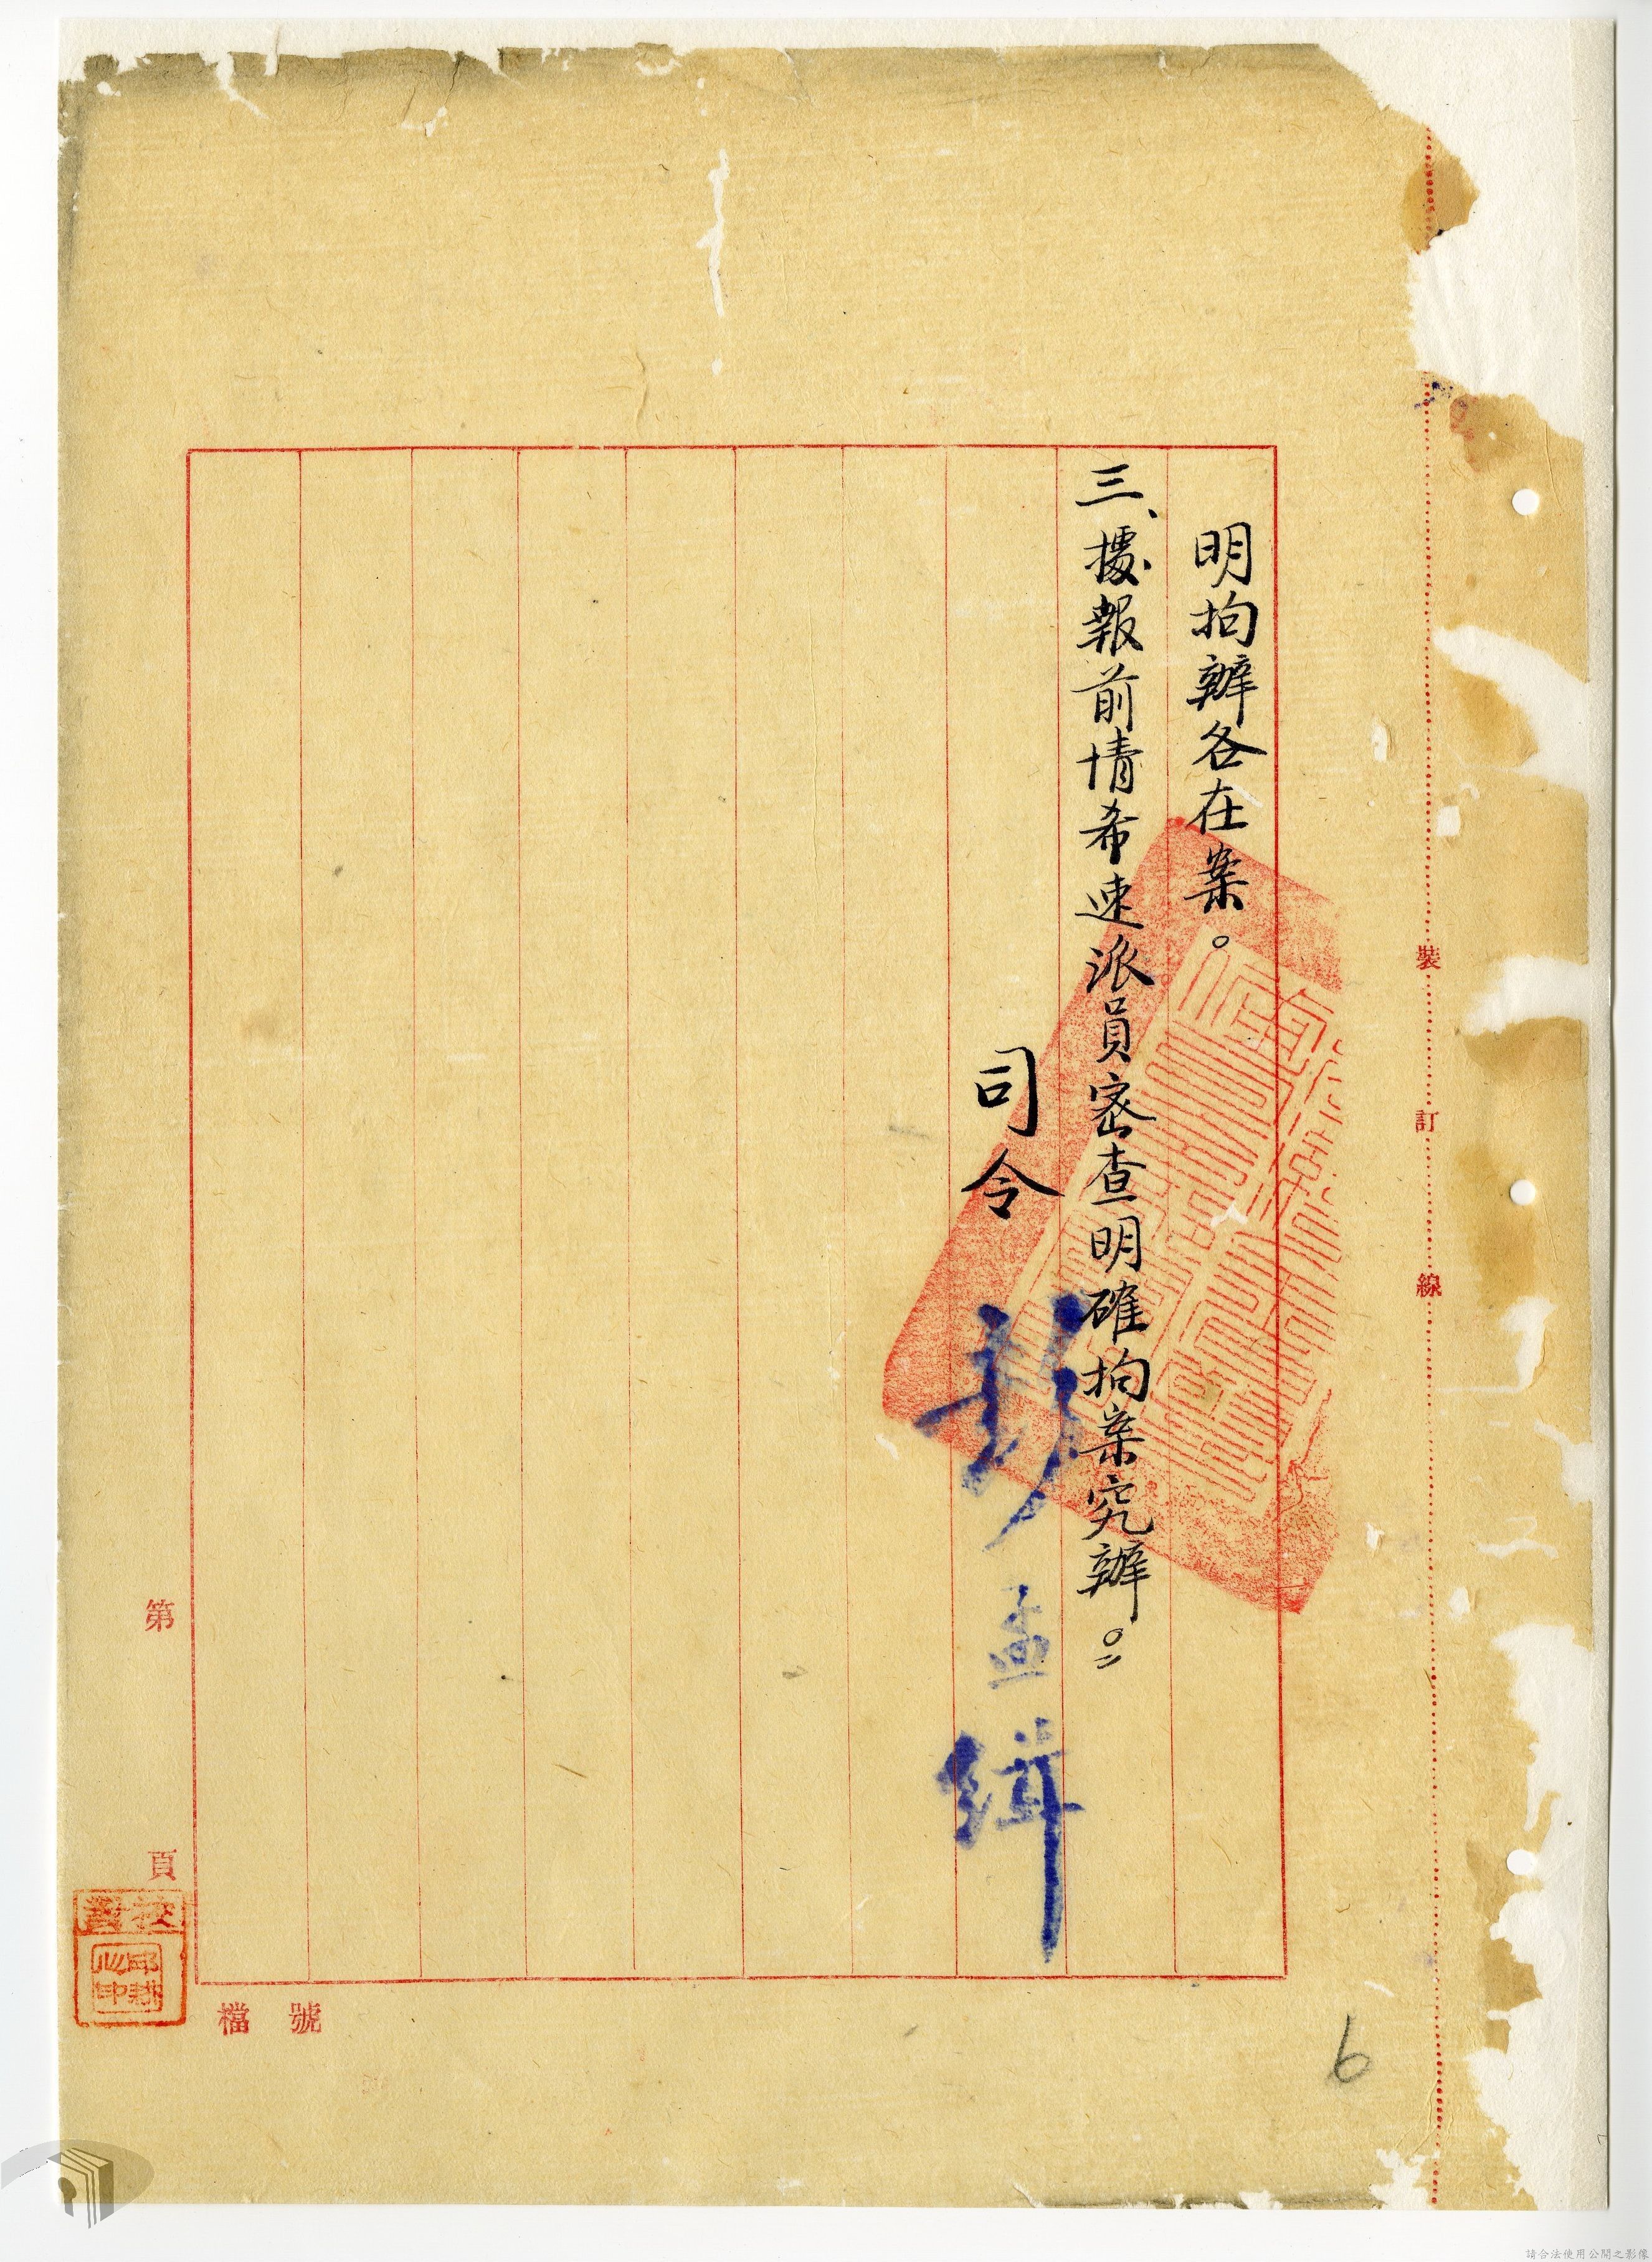 明拘辦各在案。
三、據報前情希速派員密查明確拘案究辦。
司令 彭孟緝
裝 訂 線
第 頁
檔 號
校對
6
請合法使用公開之影像